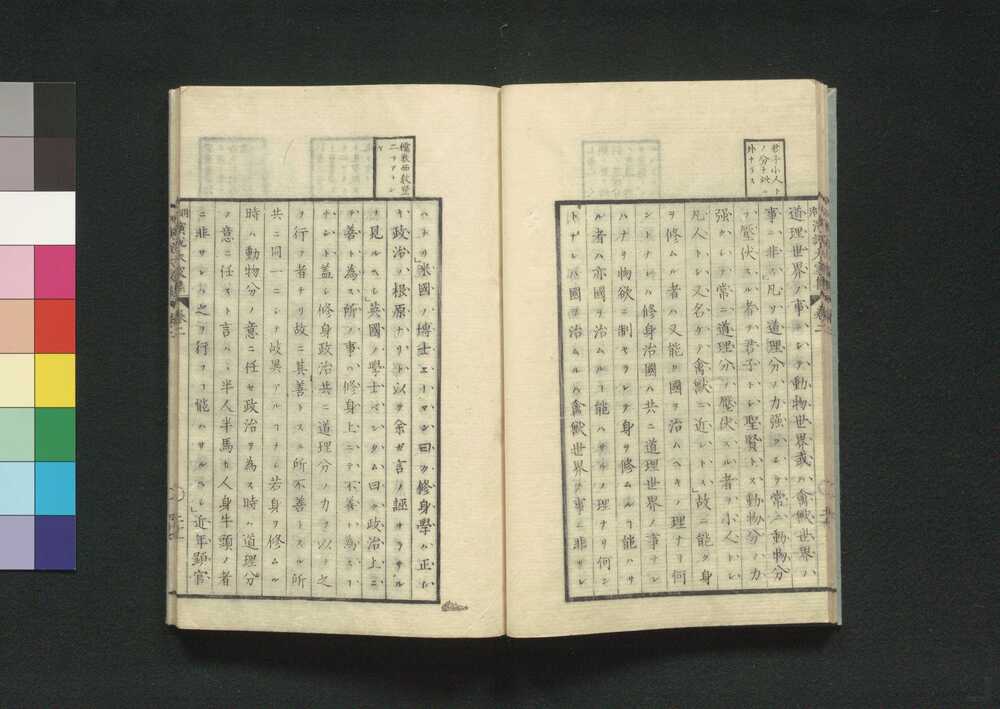 君子小人ト
ノ分チ此ニ
外ナラス
道理世界ノ事ニシテ動物世界或ハ禽獣世界ハ
事ニ非ス」凡ソ道理分ノ力強クシテ常ニ動物分
ヲ壓伏スル者ヲ君子トシ聖賢トス動物分ノ力
强クシテ常ニ道理分ヲ壓伏スル者ヲ小人トシ
凡人トシ又名ケテ禽獣ニ近シトス」故ニ能ク身
ヲ修ムル者ハ又能ク國ヲ治ムヘキノ理ナリ何
ントナレハ修身治國ハ共ニ道理世界ノ事ナレ
ハナリ物欲ニ制セラレテ身ヲ修ムル能ハサ
ル者ハ亦國ヲ治ムル能ハサルノ理ナリ何ン
トナレハ國ヲ治ムルハ禽獣世界ノ事ニ非サレ
儒教西教
ハナリ」米國ノ博士エイマン曰ク修身學ハ正シ
キ政治ノ根原ナリト以テ余ガ言ノ誣ヒサル
ヲ見ルヘシ」英國ノ學士ベンタム曰ク政治上ニ
テ善ト為ス所ノ事ハ修身上ニテ不善ト為ス
ナシト蓋シ修身政治共ニ道理分ノ力ヲ以テ之
ヲ行フ者ナリ故ニ其善トスル所不善トスル所
共ニ同一ニシテ岐異アルナシ若身ヲ修ムル
時ハ動物分ノ意ニ任セ政治ヲ為ス時ハ道理分
ノ意ニ任スト言ハヽ半人半馬カ人身牛頭ノ者
ニ非サレハ之ヲ行フ能ハサルヘシ」近年顕官